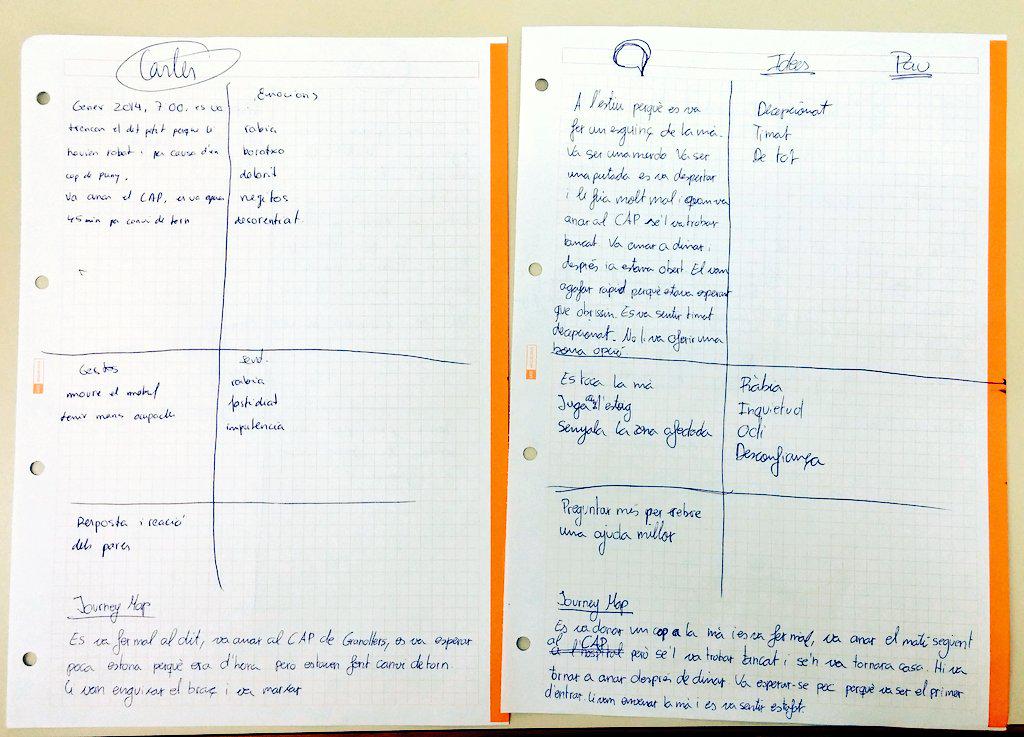 Carles
Gener 2014, 7:00. es va
trencar el dit petit perque li
havien robat i per causa d'un
cop de puny.
Va anar el CAP, es va esperar
45 min per canvi de torn
Emocions
rabia
borratxo
dolorit
negitos
desorentrat.
Gestos
moure el
tenir mans ocupades
rabia
fastidiat
impotencia
Resposta i reació
dels pares
Journey Map
Es va fer mal al dit, va anar al CAP de Granollers, es va esperar
poca estona perquè era d'hora però estaven fent canvi de torn.
li van enguixar el braç i va marxar
Idees
Pau
A l'estiu perquè es va
fer un esguinç de la mà.
Va ser una merda Va ser
una putada es va despertar
i le feia molt mal i quan va
anar al CAP se'l va trobar
tancat. Va anar a dinar i
després ja estava obert. El van
agafar rapid perquè estava esperant
que obrissin. Es va sentir timat
decepcionat. No li va oferir una
bona opció
Decepcionat
Timat
De tot
Es toca la mà
Juga l'estoig
Senyala la zona afectada
Ràbia
Inquietud
Odi
Desconfiança
Preguntar mes per rebre
una ajuda millor
Journey Map
Es va donar un cop a la mà i es va fer mal, va anar el matí següent
al CAP
a l'hospital però se'l va trobar tancat i se'n va tornar a casa. Hi va
tornar a anar després de dinar. Va esperar-se poc perquè va ser el primer
d'entrar. li van envenar la mà i es va sentir estafat.